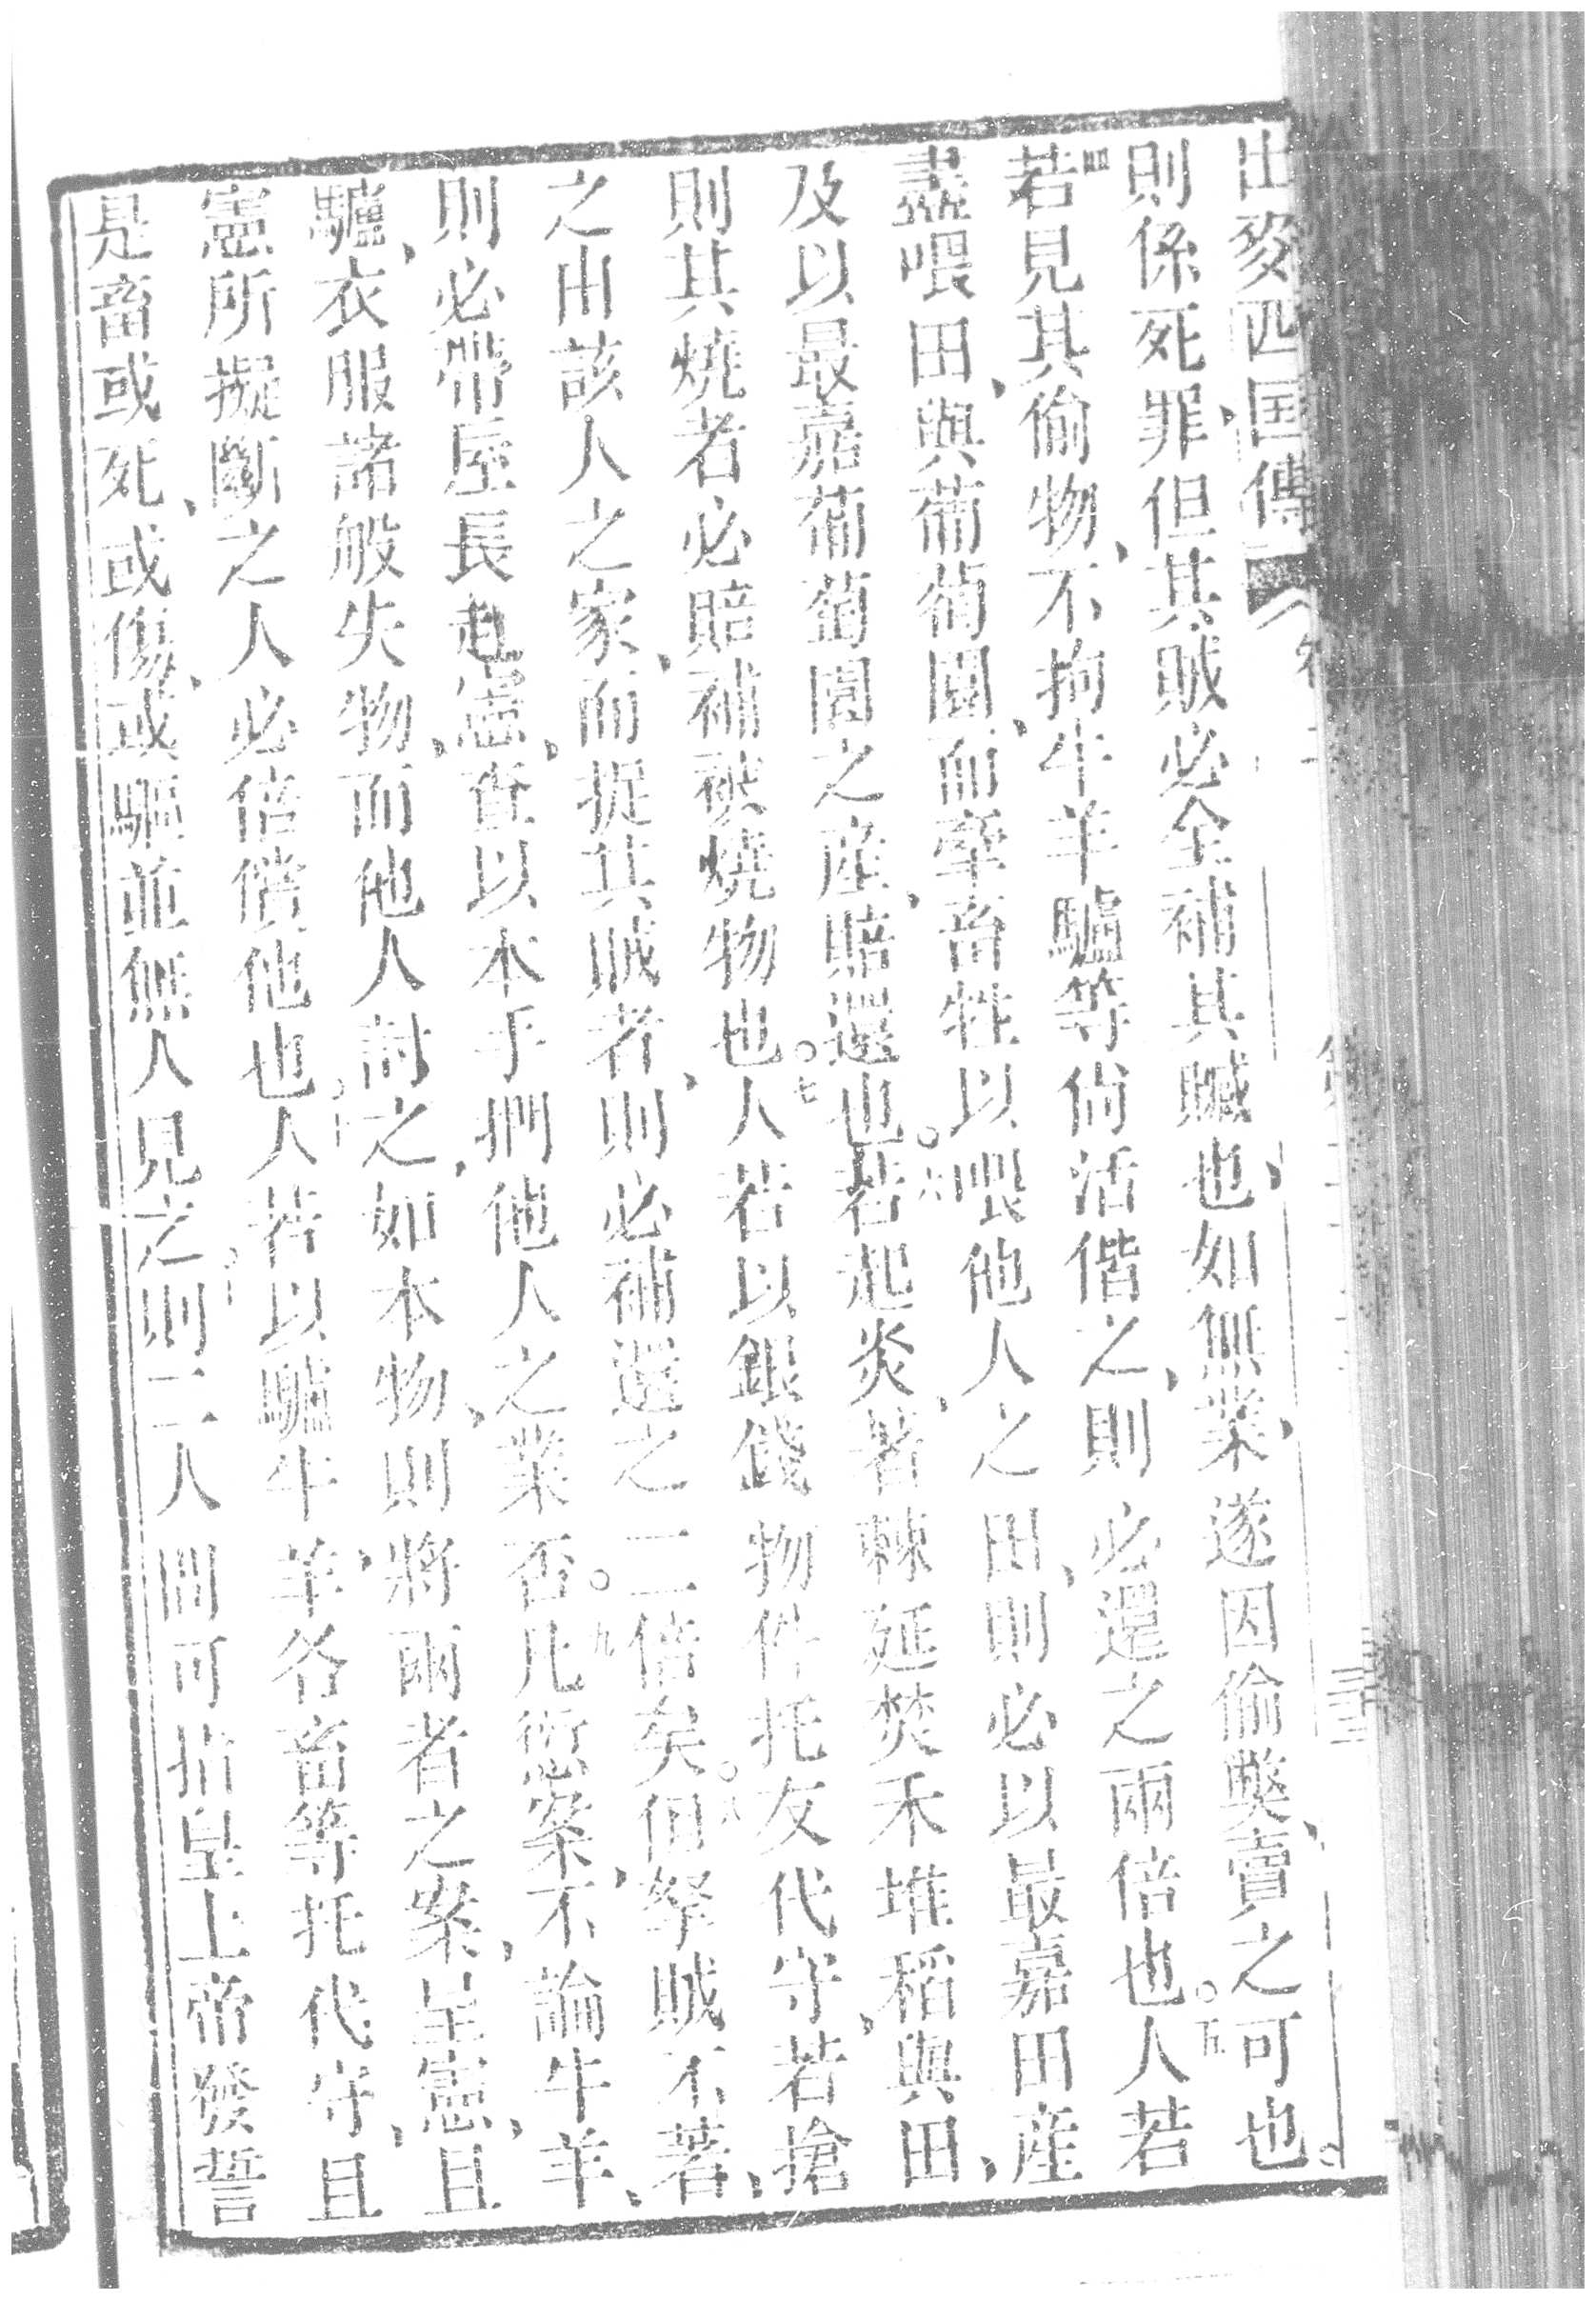 出麥西国傳
則係死罪、但其賊必全補其贓也、如無業、遂因偷獘、賣之可也。
四若見其偷物、不拘牛羊驢等尚活偕之、則必還之兩倍也。五人若
盡喂田、與葡萄園、而牽畜牲以喂他人之田、則必以最嘉田產
及以最嘉葡萄園之產、賠還也。六若起炎、著棘延焚禾堆、稻與田、
則其燒者必賠補被燒物也。七人若以銀錢物件托友代守、若搶
之由該人之家、而捉其賊者、則必補還之二倍矣。八但拏賊不著、
則必帶屋長赴憲、查以本手捫他人之業否。九凡愆案、不論牛羊、
驢、衣服諸般失物、而他人討之、如本物、則將兩者之案、呈憲、且
憲所擬斷之人必倍償他也。十人若以驢牛羊各畜等托代守、且
是畜或死、或傷、或驅並無人見之。則二人間可指皇上帝發誓